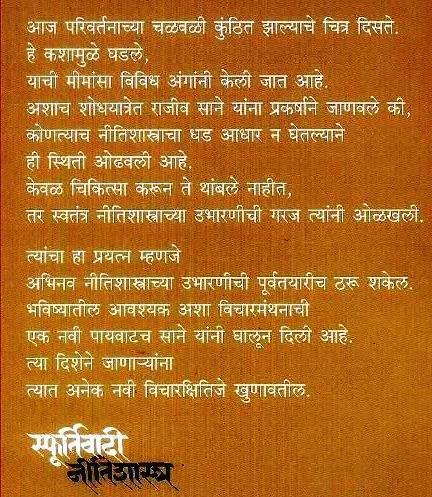 आज परिवर्तनाच्या चळवळी कुंठित झाल्याचे चित्र दिसते.
हे कशामुळे घडले,
याची मीमांसा विविध अंगांनी केली जात आहे.
अशाच शोधयात्रेत राजीव साने यांना प्रकर्षाने जाणवले की,
कोणत्याच नीतिशास्त्राचा धड आधार न घेतल्याने
ही स्थिती ओढवली आहे.
केवळ चिकित्सा करून ते थांबले नाहीत,
तर स्वतंत्र नीतिशास्त्राच्या उभारणीची गरज त्यांनी ओळखली.
त्यांचा हा प्रयत्न म्हणजे
अभिनव नीतिशास्त्राच्या उभारणीची पूर्वतयारीच ठरू शकेल.
भविष्यातील आवश्यक अशा विचारमंथनाची
एक नवी पायवाटच साने यांनी घालून दिली आहे.
त्या दिशेने जाणाऱ्यांना
त्यात अनेक नवी विचारक्षितिजे खुणावतील.
स्फूर्तिवादी
नीतिशास्त्र